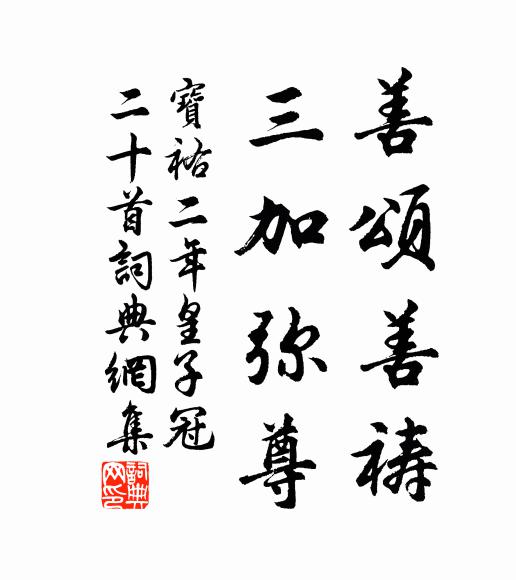 善頌善禱
三加弥尊
寶祐二年皇子冠
二十首詞典網集
詞典网印